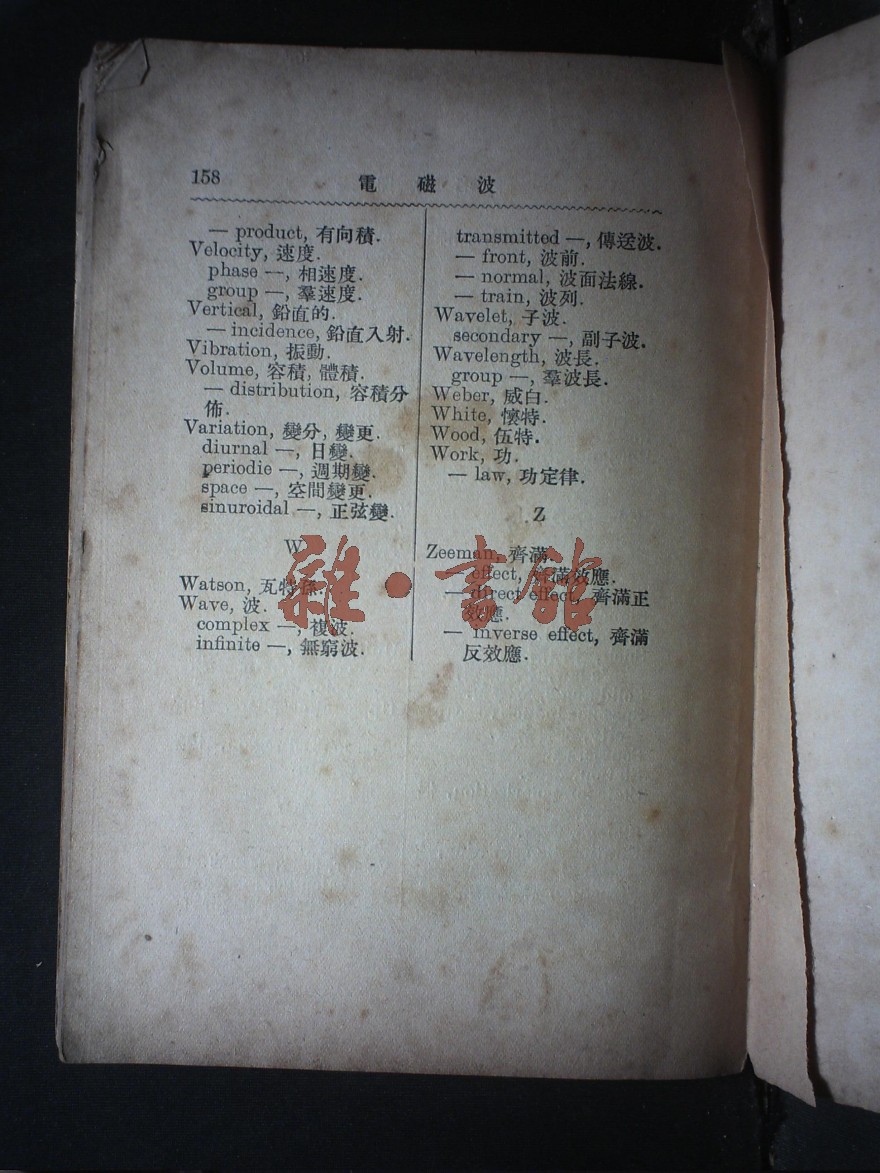 158
電磁波
— product, 有向積.
Velocity, 速度.
phase —, 相速度.
group —, 羣速度.
Vertical, 鉛直的.
— incidence, 鉛直入射.
Vibration, 振動.
Volume, 容積, 體積.
— distribution, 容積分
佈.
Variation, 變分, 變更.
diurnal —, 日變.
periodie —, 週期變.
space —, 空間變更.
sinuroidal —, 正弦變.
W
Watson, 瓦特孫.
Wave, 波.
complex —, 複波.
infinite —, 無窮波.
transmitted —, 傳送波.
— front, 波前.
— normal, 波面法線.
— train, 波列.
Wavelet, 子波.
secondary —, 副子波.
Wavelength, 波長.
group —, 羣波長.
Weber, 威白.
White, 懷特.
Wood, 伍特.
Work, 功.
— law, 功定律.
Z
Zeeman, 齊滿.
— effect, 齊滿效應.
— direct effect, 齊滿正
效應.
— inverse effect, 齊滿
反效應.
雜·書館